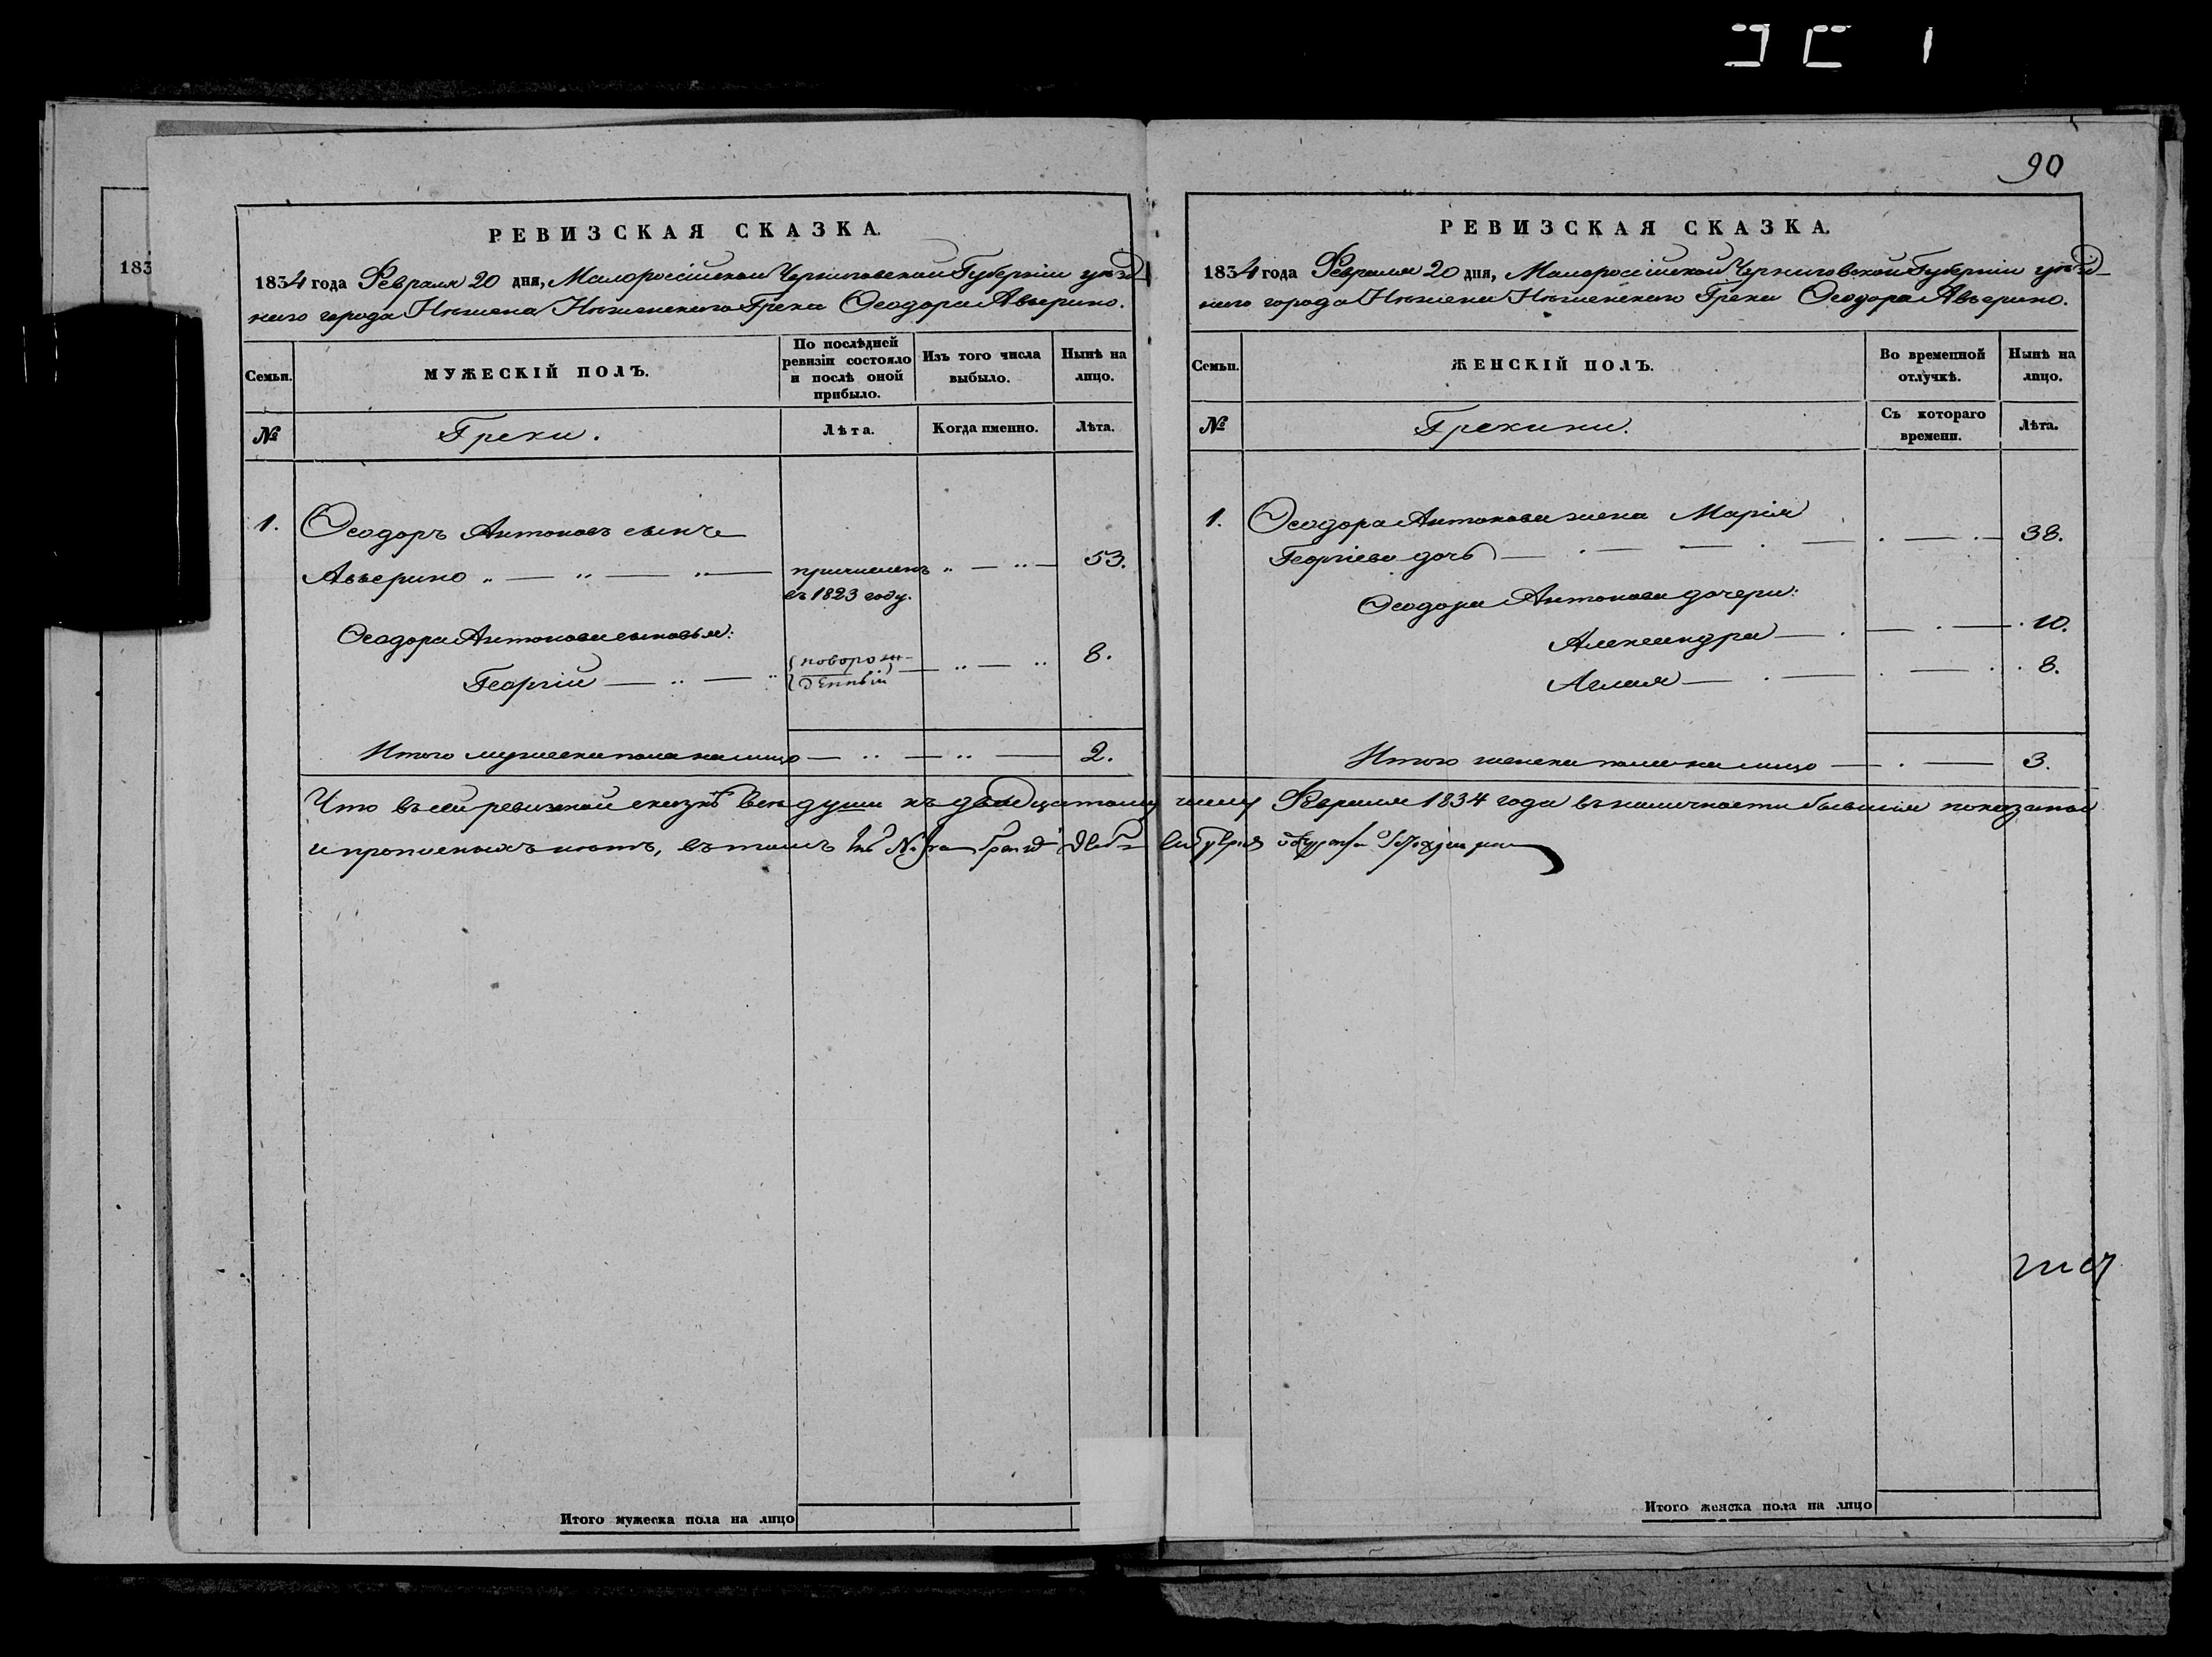 90
183
РЕВИЗСКАЯ СКАЗКА.
1834 года Февраля 20 дня, Малороссійской Черниговской Губерніи уѣзд-
наго города Нѣжена Нѣженскаго Грека Ѳеодора Авъерино.
Семьи.
МУЖЕСКІЙ ПОЛЪ.
По послѣдней ревизіи состояло и послѣ оной прибыло.
Изъ того числа выбыло.
Нынѣ на лицо.
№
Греки.
Лѣта.
Когда именно.
Лѣта.
1. Ѳеодоръ Антоновъ сынъ
Авъерино причисленъ 53.
въ 1823 году.
Ѳеодора Антонова сыновья:
Георгій новорож- 8.
денный
Итого мужеска пола на лицо 2.
РЕВИЗСКАЯ СКАЗКА.
1834 года Февраля 20 дня, Малороссійской Черниговской Губерніи уѣзд-
наго города Нѣжена Нѣженскаго Грека Ѳеодора Авъерино.
Семьи.
ЖЕНСКІЙ ПОЛЪ.
Во временной отлучкѣ.
Нынѣ на лицо.
№
Грекини.
Съ котораго времени.
Лѣта.
1. Ѳеодора Антонова жена Марія
Георгіева дочь 38.
Ѳеодора Антонова дочери:
Александра 10.
Аглая 8.
Итого женска пола на лицо 3.
Что въ сей ревизской сказкѣ всѣ души къ двадцатому числу Февраля 1834 года въ наличности бывшія показаны
и прописныхъ нѣтъ, въ томъ
Итого мужеска пола на лицо
Итого женска пола на лицо